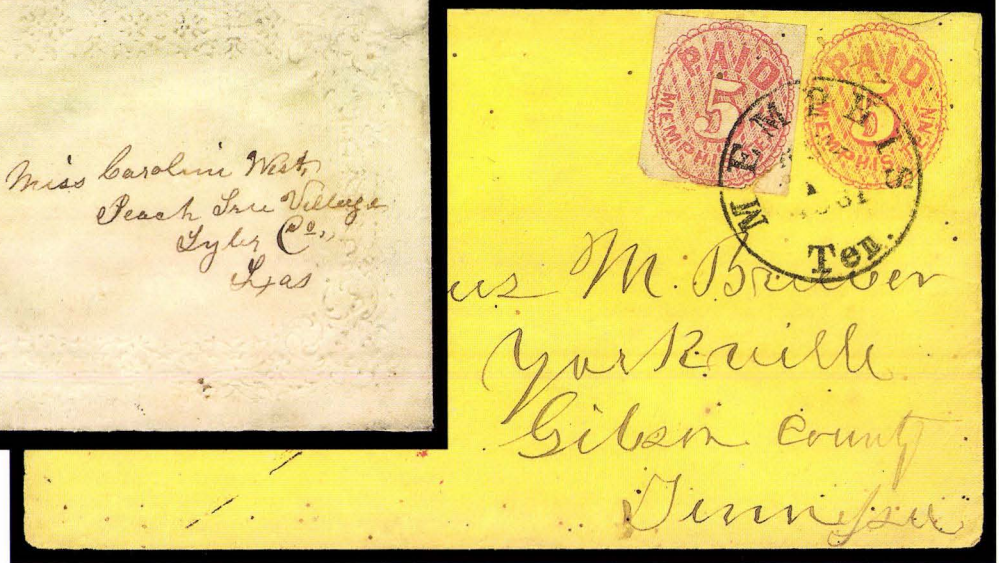 Miss Caroline West,
Peach Tree Village
Tyler Co,,
Texas
PAID
5
MEMPHIS
PAID
5
MEMPHIS TENN
MEMPHIS
Ten.
us M. Brewer
Yorkville
Gibson County
Tennessee